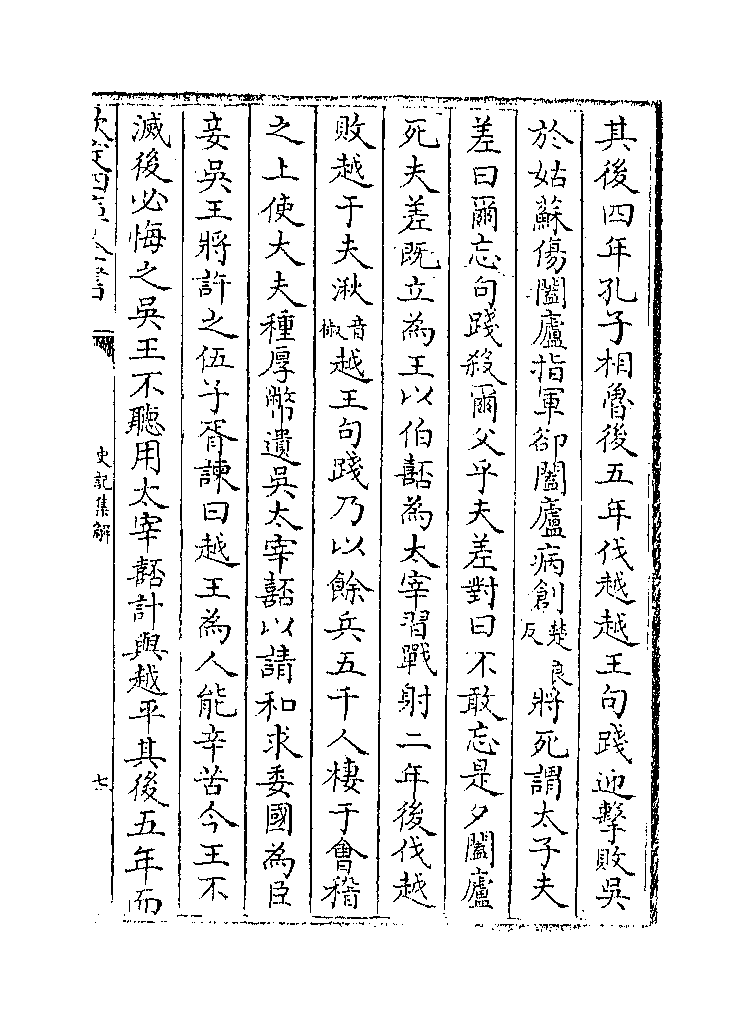 其後四年孔子相魯後五年伐越越王句踐迎擊敗吳
於姑蘇傷闔廬指軍卻闔廬病創楚良反將死謂太子夫
差曰爾忘句踐殺爾父乎夫差對曰不敢忘是夕闔廬
死夫差既立為王以伯嚭為太宰習戰射二年後伐越
敗越于夫湫音椒越王句踐乃以餘兵五千人棲于會稽
之上使大夫種厚幣遺吳太宰嚭以請和求委國為臣
妾吳王將許之伍子胥諫曰越王為人能辛苦今王不
滅後必悔之吳王不聽用太宰嚭計與越平其後五年而
欽定四庫全書
史記集解
七